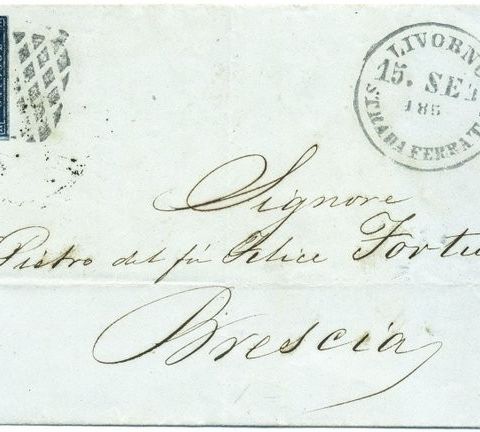 LIVORNO
15. SET
185
STRADA FERRATA
Signore
Pietro del fù Felice Fortu
Brescia